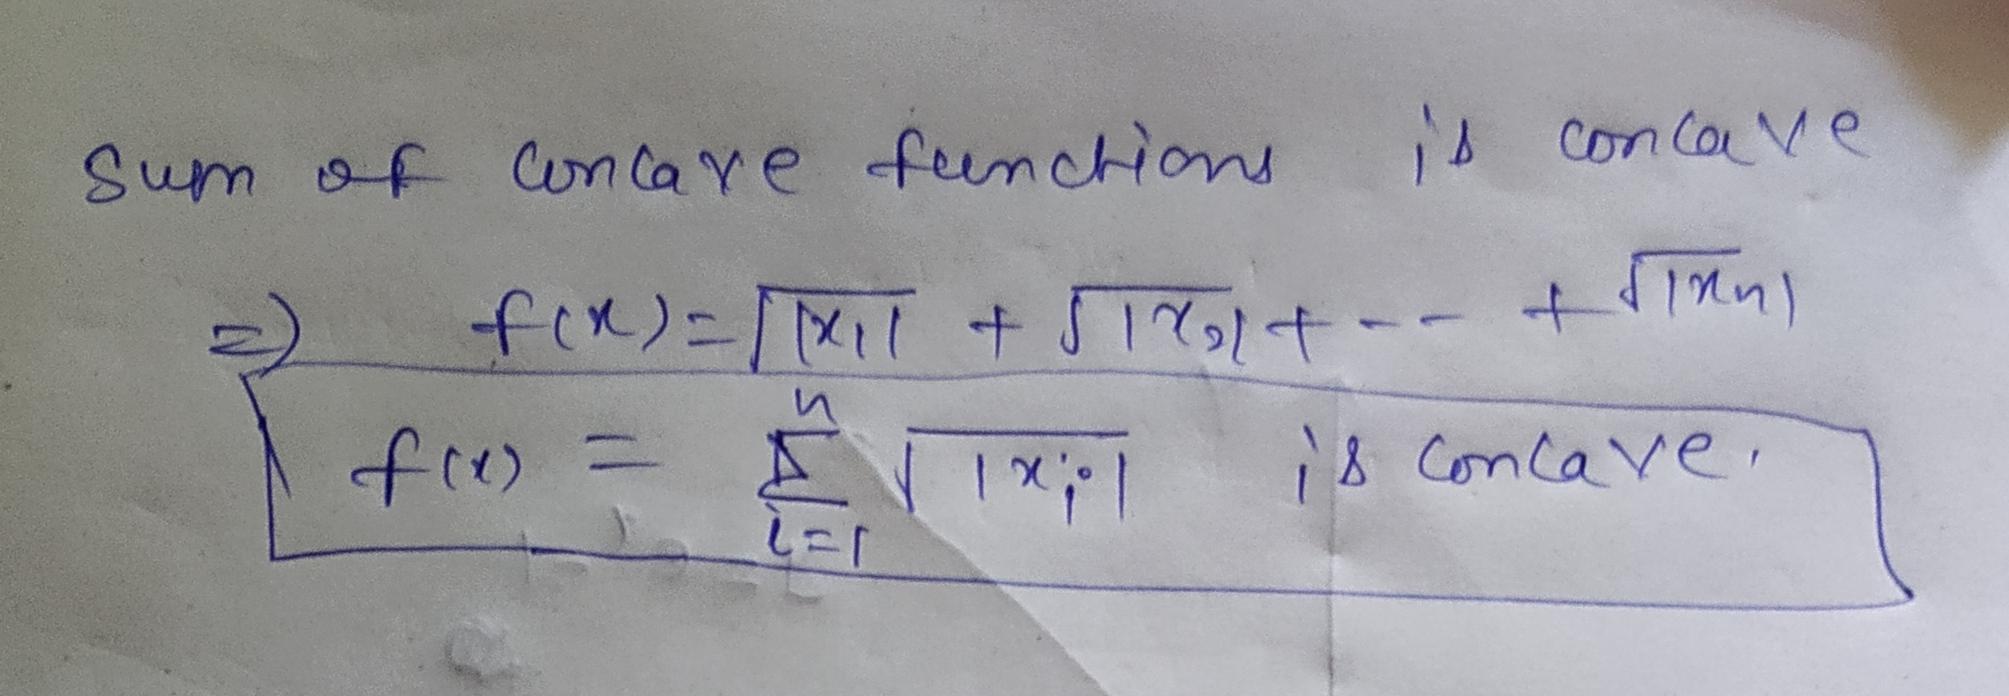 Sum of concave functions is concave
=> f(x) = √|x₁| + √|x₂| + -- + √|xₙ|
f(x) = ∑ᵢ₌₁ⁿ √|xᵢ| is concave.